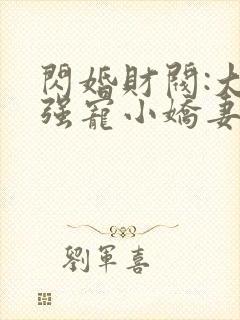 閃婚財閥:大
强寵小嬌妻
劉軍喜